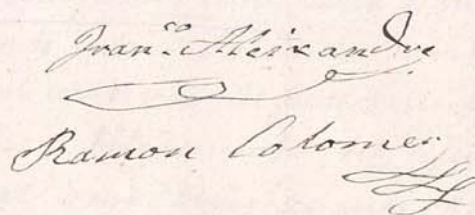 Fran.co Aleixandre
Ramon Colomer